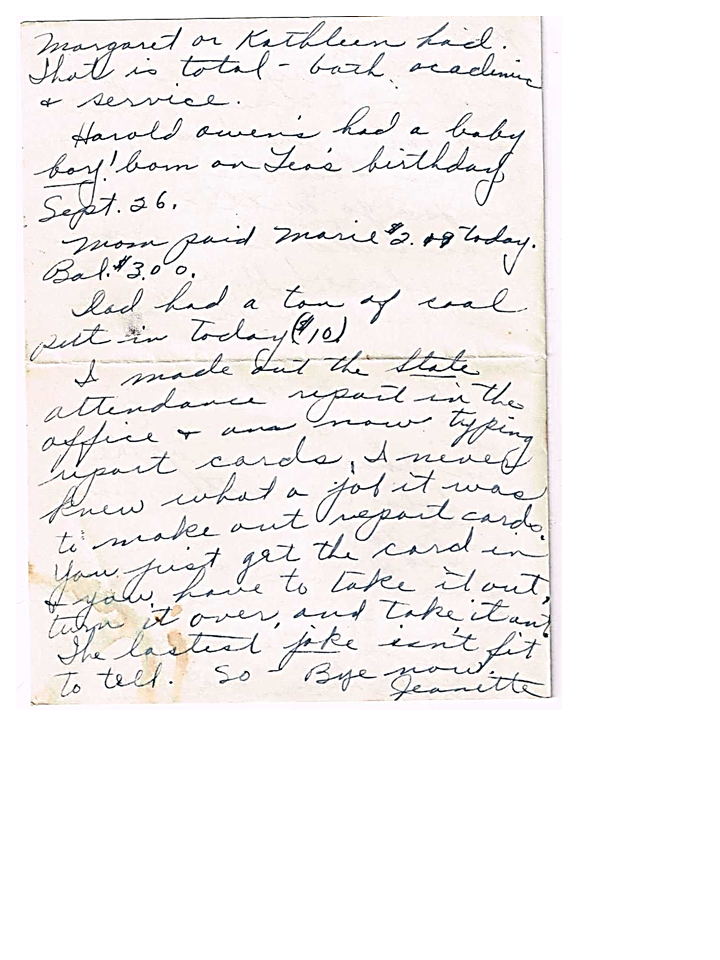 Margaret or Kathleen had.
That is total - both academic
& service.
Harold Owen's had a baby
boy! born on Leo's birthday
Sept. 26.
Mom paid Marie $2.00 today.
Bal. $3.00.
Dad had a ton of coal
put in today ($10)
I made out the State
attendance report in the
office & am now typing
report cards. I never
knew what a job it was
to make out report cards.
You just get the card in
& you have to take it out,
turn it over, and take it out.
The lastest joke isn't fit
to tell. So - Bye now.
Jeanette